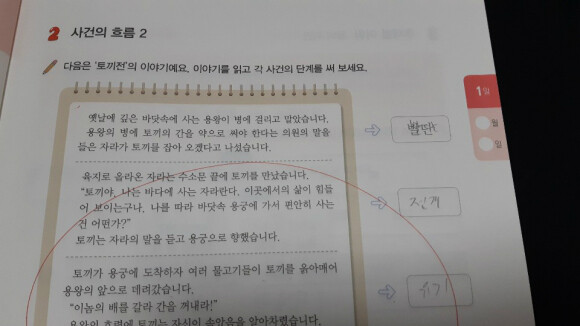 2 사건의 흐름 2
다음은 '토끼전'의 이야기예요. 이야기를 읽고 각 사건의 단계를 써 보세요.
1일
월
일
옛날에 깊은 바닷속에 사는 용왕이 병에 걸리고 말았습니다.
용왕의 병에 토끼의 간을 약으로 써야 한다는 의원의 말을
들은 자라가 토끼를 잡아 오겠다고 나섰습니다.
발단
육지로 올라온 자라는 수소문 끝에 토끼를 만났습니다.
"토끼야, 나는 바다에 사는 자라란다. 이곳에서의 삶이 힘들
어 보이는구나. 나를 따라 바닷속 용궁에 가서 편안히 사는
건 어떤가?"
토끼는 자라의 말을 듣고 용궁으로 향했습니다.
전개
토끼가 용궁에 도착하자 여러 물고기들이 토끼를 옭아매어
용왕의 앞으로 데려갔습니다.
"이놈의 배를 갈라 간을 꺼내라!"
용왕의 호령에 토끼는 자신이 속았음을 알아차렸습니다.